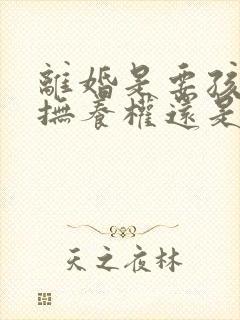 離婚是要孩
撫養權還是
天之夜林